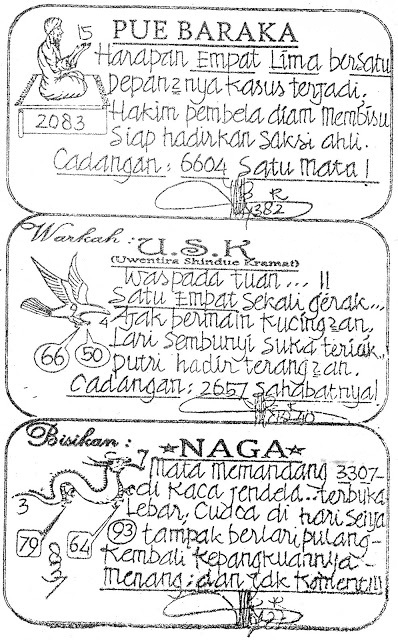 PUE BARAKA
15
Harapan Empat Lima bersatu
Depan2nya kasus terjadi,
Hakim pembela diam membisu
Siap hadirkan saksi ahli.
2083
Cadangan: 6604 Satu mata!
382
Warkah:
U.S.K
(Uwentira Shindue Kramat)
Waspada tuan... !!
Satu Empat sekali gerak...
Ajak bermain kucing2an,
Lari sembunyi suka teriak,
Putri hadir terang2an.
4
66
50
Cadangan: 2657 Sahabatnya!
Bisikan:
NAGA
7
Mata memandang 3307-
di kaca jendela...terbuka
Lebar, Cuaca di hari senja
93 tampak berlari pulang-
Kembali kepangkuannya-
Menang; dan tak komen!!!
3
79
64